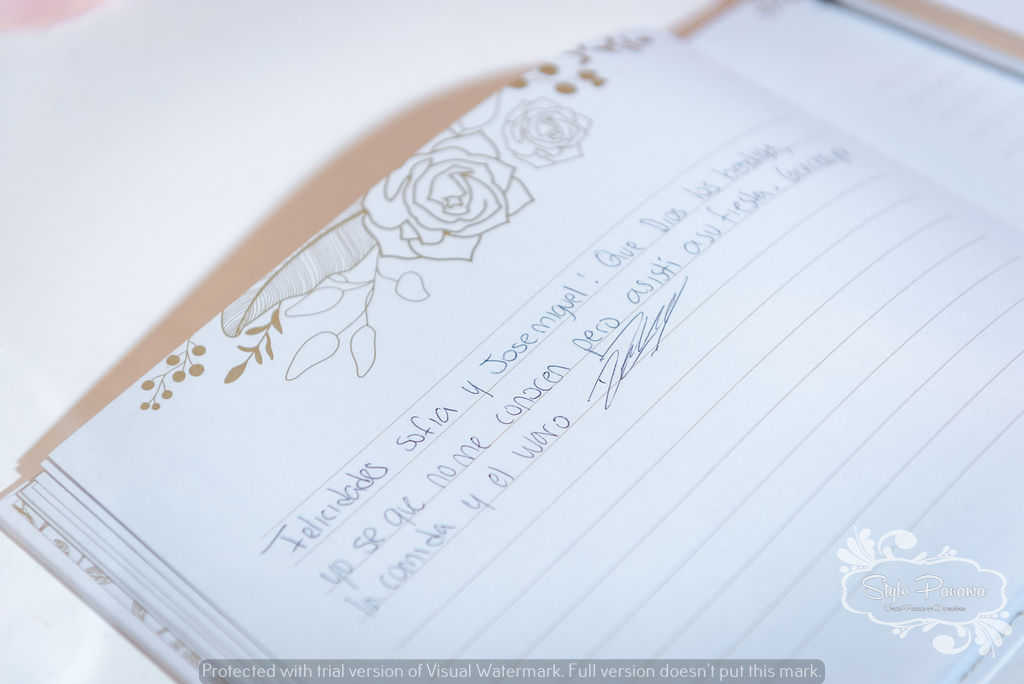 Felicidades Sofia y Jose miguel! Que Dios los bendiga,
yo se que no me conocen pero asisti a su fiesta. Gracias por
la comida y el waro
Style Panama
Protected with trial version of Visual Watermark. Full version doesn't put this mark.